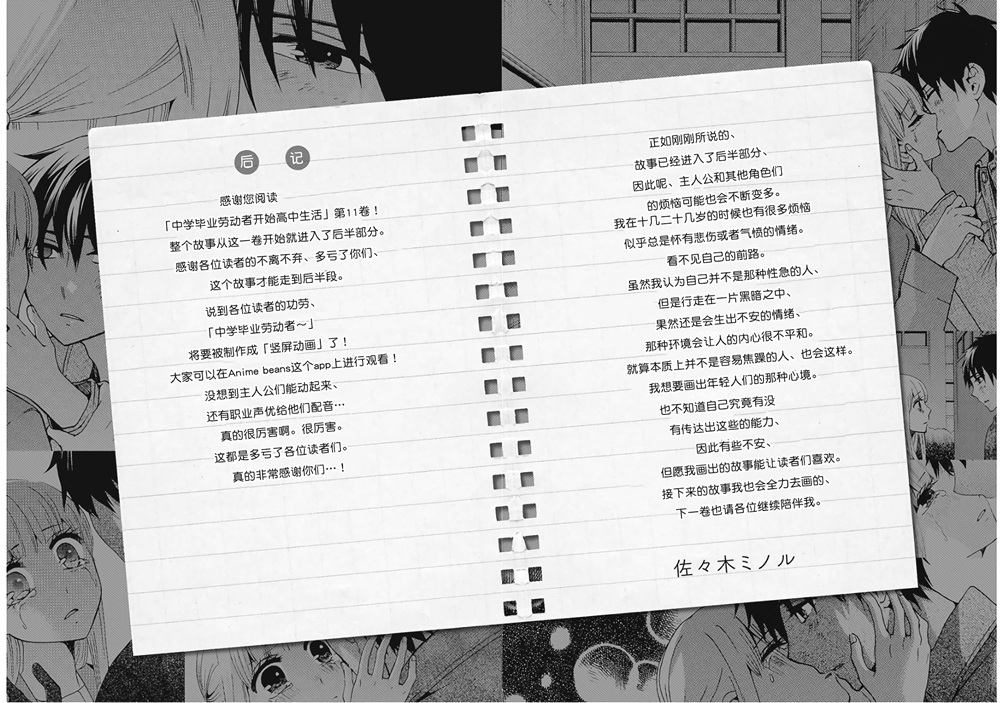 后记
感谢您阅读
「中学毕业劳动者开始高中生活」第11卷！
整个故事从这一卷开始就进入了后半部分。
感谢各位读者的不离不弃、多亏了你们、
这个故事才能走到后半段。
说到各位读者的功劳、
「中学毕业劳动者～」
将要被制作成「竖屏动画」了！
大家可以在Anime beans这个app上进行观看！
没想到主人公们能动起来、
还有职业声优给他们配音…
真的很厉害啊。很厉害。
这都是多亏了各位读者们。
真的非常感谢你们…！
正如刚刚所说的、
故事已经进入了后半部分、
因此呢、主人公和其他角色们
的烦恼可能也会不断变多。
我在十几二十几岁的时候也有很多烦恼
似乎总是怀有悲伤或者气愤的情绪。
看不见自己的前路。
虽然我认为自己并不是那种性急的人、
但是行走在一片黑暗之中、
果然还是会生出不安的情绪、
那种环境会让人的内心很不平和。
就算本质上并不是容易焦躁的人、也会这样。
我想要画出年轻人们的那种心境。
也不知道自己究竟有没
有传达出这些的能力、
因此有些不安、
但愿我画出的故事能让读者们喜欢。
接下来的故事我也会全力去画的、
下一卷也请各位继续陪伴我。
佐々木ミノル